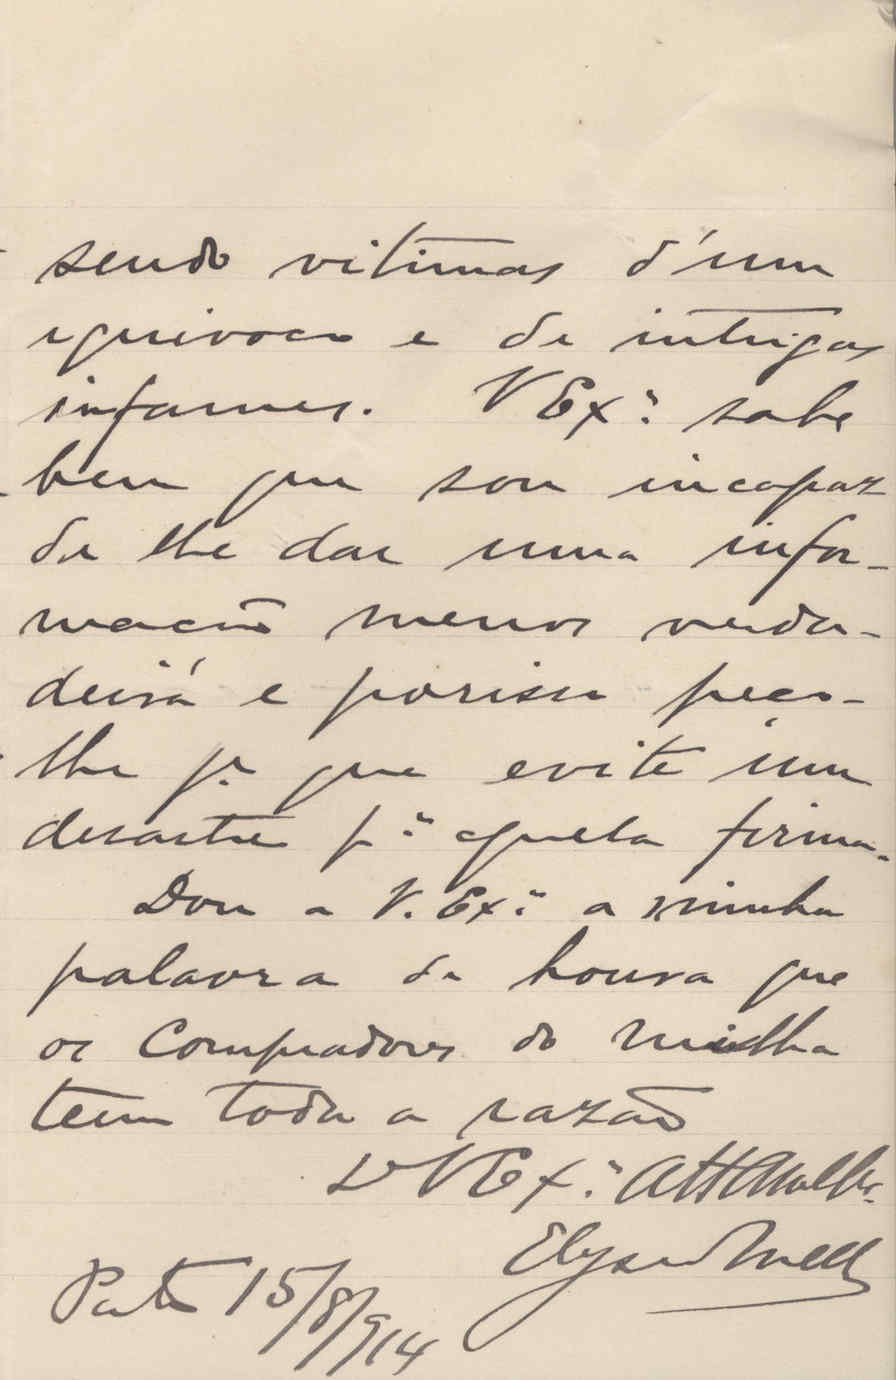 sendo vitimas d'um
equivoco e de intrigas
infames. V Exª sabe
bem que sou incapaz
de lhe dar uma infor-
mação menos verda-
deira e porisso peço-
lhe pª que evite um
desastre pª aquela firma.
Dou a V. Exª a minha
palavra de honra que
os Compradores do milho
tem toda a razão
D V Exª
Elyseu Mello
Porto 15/8/914